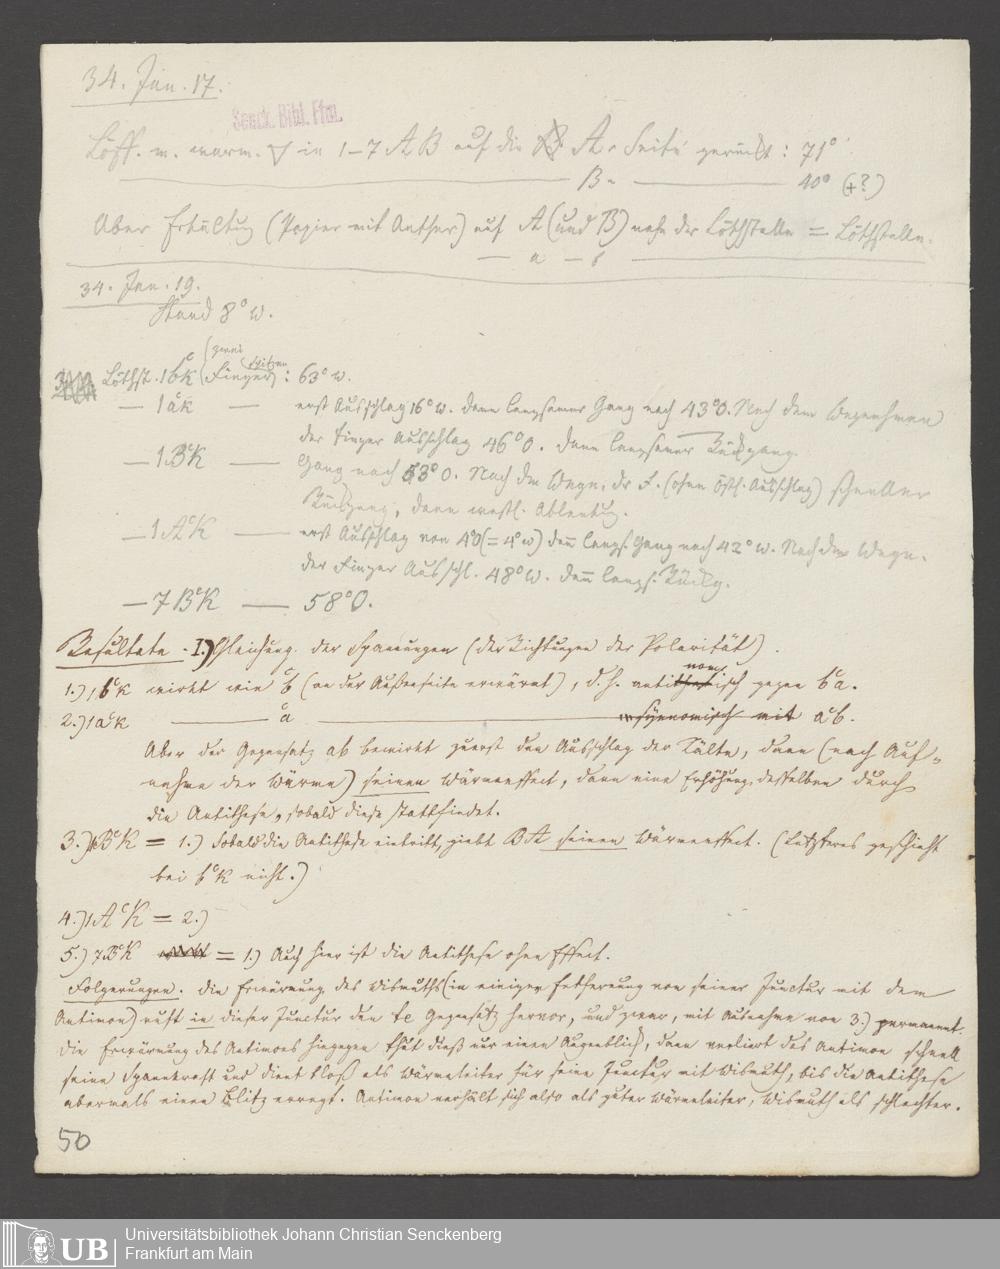 34. Jan. 17.
Senck. Bibl. Ffm.
Löff. m. warm. ▽ in 1–7 AB auf die A-Seite gerückt: 71°
——— B- ——— 40° (+?)
Aber Erkältung (Papier mit Aether) auf A (und B) nahe der Löthstelle = Löthstelle.
— a — b ———
34. Jan. 19.
Stand 8° w.
Löthst. 1bcK (Fingerspitzen): 63° w.
— 1acK — erst Ausschlag 16° w. dann langsamer Gang nach 43° O. Nach dem Wegnehmen
der Finger Ausschlag 46° O. dann langsamer Rückgang.
— 1BcK — Gang nach 53° O. Nach dem Wegn. der F. (ohne östl. Ausschlag) schneller
Rückgang, dann westl. Ablenkung.
— 1AcK — erst Ausschlag von 4° O (= 4° w) dann langs. Gang nach 42° w. Nach dem Wegn.
der Finger Ausschl. 48° w. dann langs. Rückg.
— 7BcK — 58° O.
Resultate. I.) Gleichung der Spannungen (der Richtungen der Polarität).
1.) 1bcK wirkt wie b (an der Außenseite erwärmt), d. h. antinomisch gegen ba.
2.) 1acK ——— a ——— synnomisch mit ab.
Aber der Gegensatz ab bewirkt zuerst den Ausschlag der Kälte, dann (nach Auf-
nahme der Wärme) seinen Wärmeeffect, dann eine Erhöhung desselben durch
die Antithese, sobald diese stattfindet.
3.) 1BcK = 1.) Sobald die Antithese eintritt, giebt BA seinen Wärmeeffect. (Letzteres geschieht
bei bcK nicht.)
4.) 1AcK = 2.)
5.) 7BcK = 1.) Auch hier ist die Antithese ohne Effect.
Folgerungen. Die Erwärmung des Wismuths (in einiger Entfernung von seiner Junctur mit dem
Antimon) ruft in dieser Junctur den te Gegensatz hervor, und zwar, mit Ausnahme von 3.) permanent.
Die Erwärmung des Antimons hingegen thut dieß nur einen Augenblick, dann verliert das Antimon schnell
seine Spannkraft und dient bloß als Wärmeleiter für seine Junctur mit Wismuth, bis die Antithese
abermals einen Blitz erregt. Antimon verhält sich also als guter Wärmeleiter, Wismuth als schlechter.
50
UB
Universitätsbibliothek Johann Christian Senckenberg
Frankfurt am Main